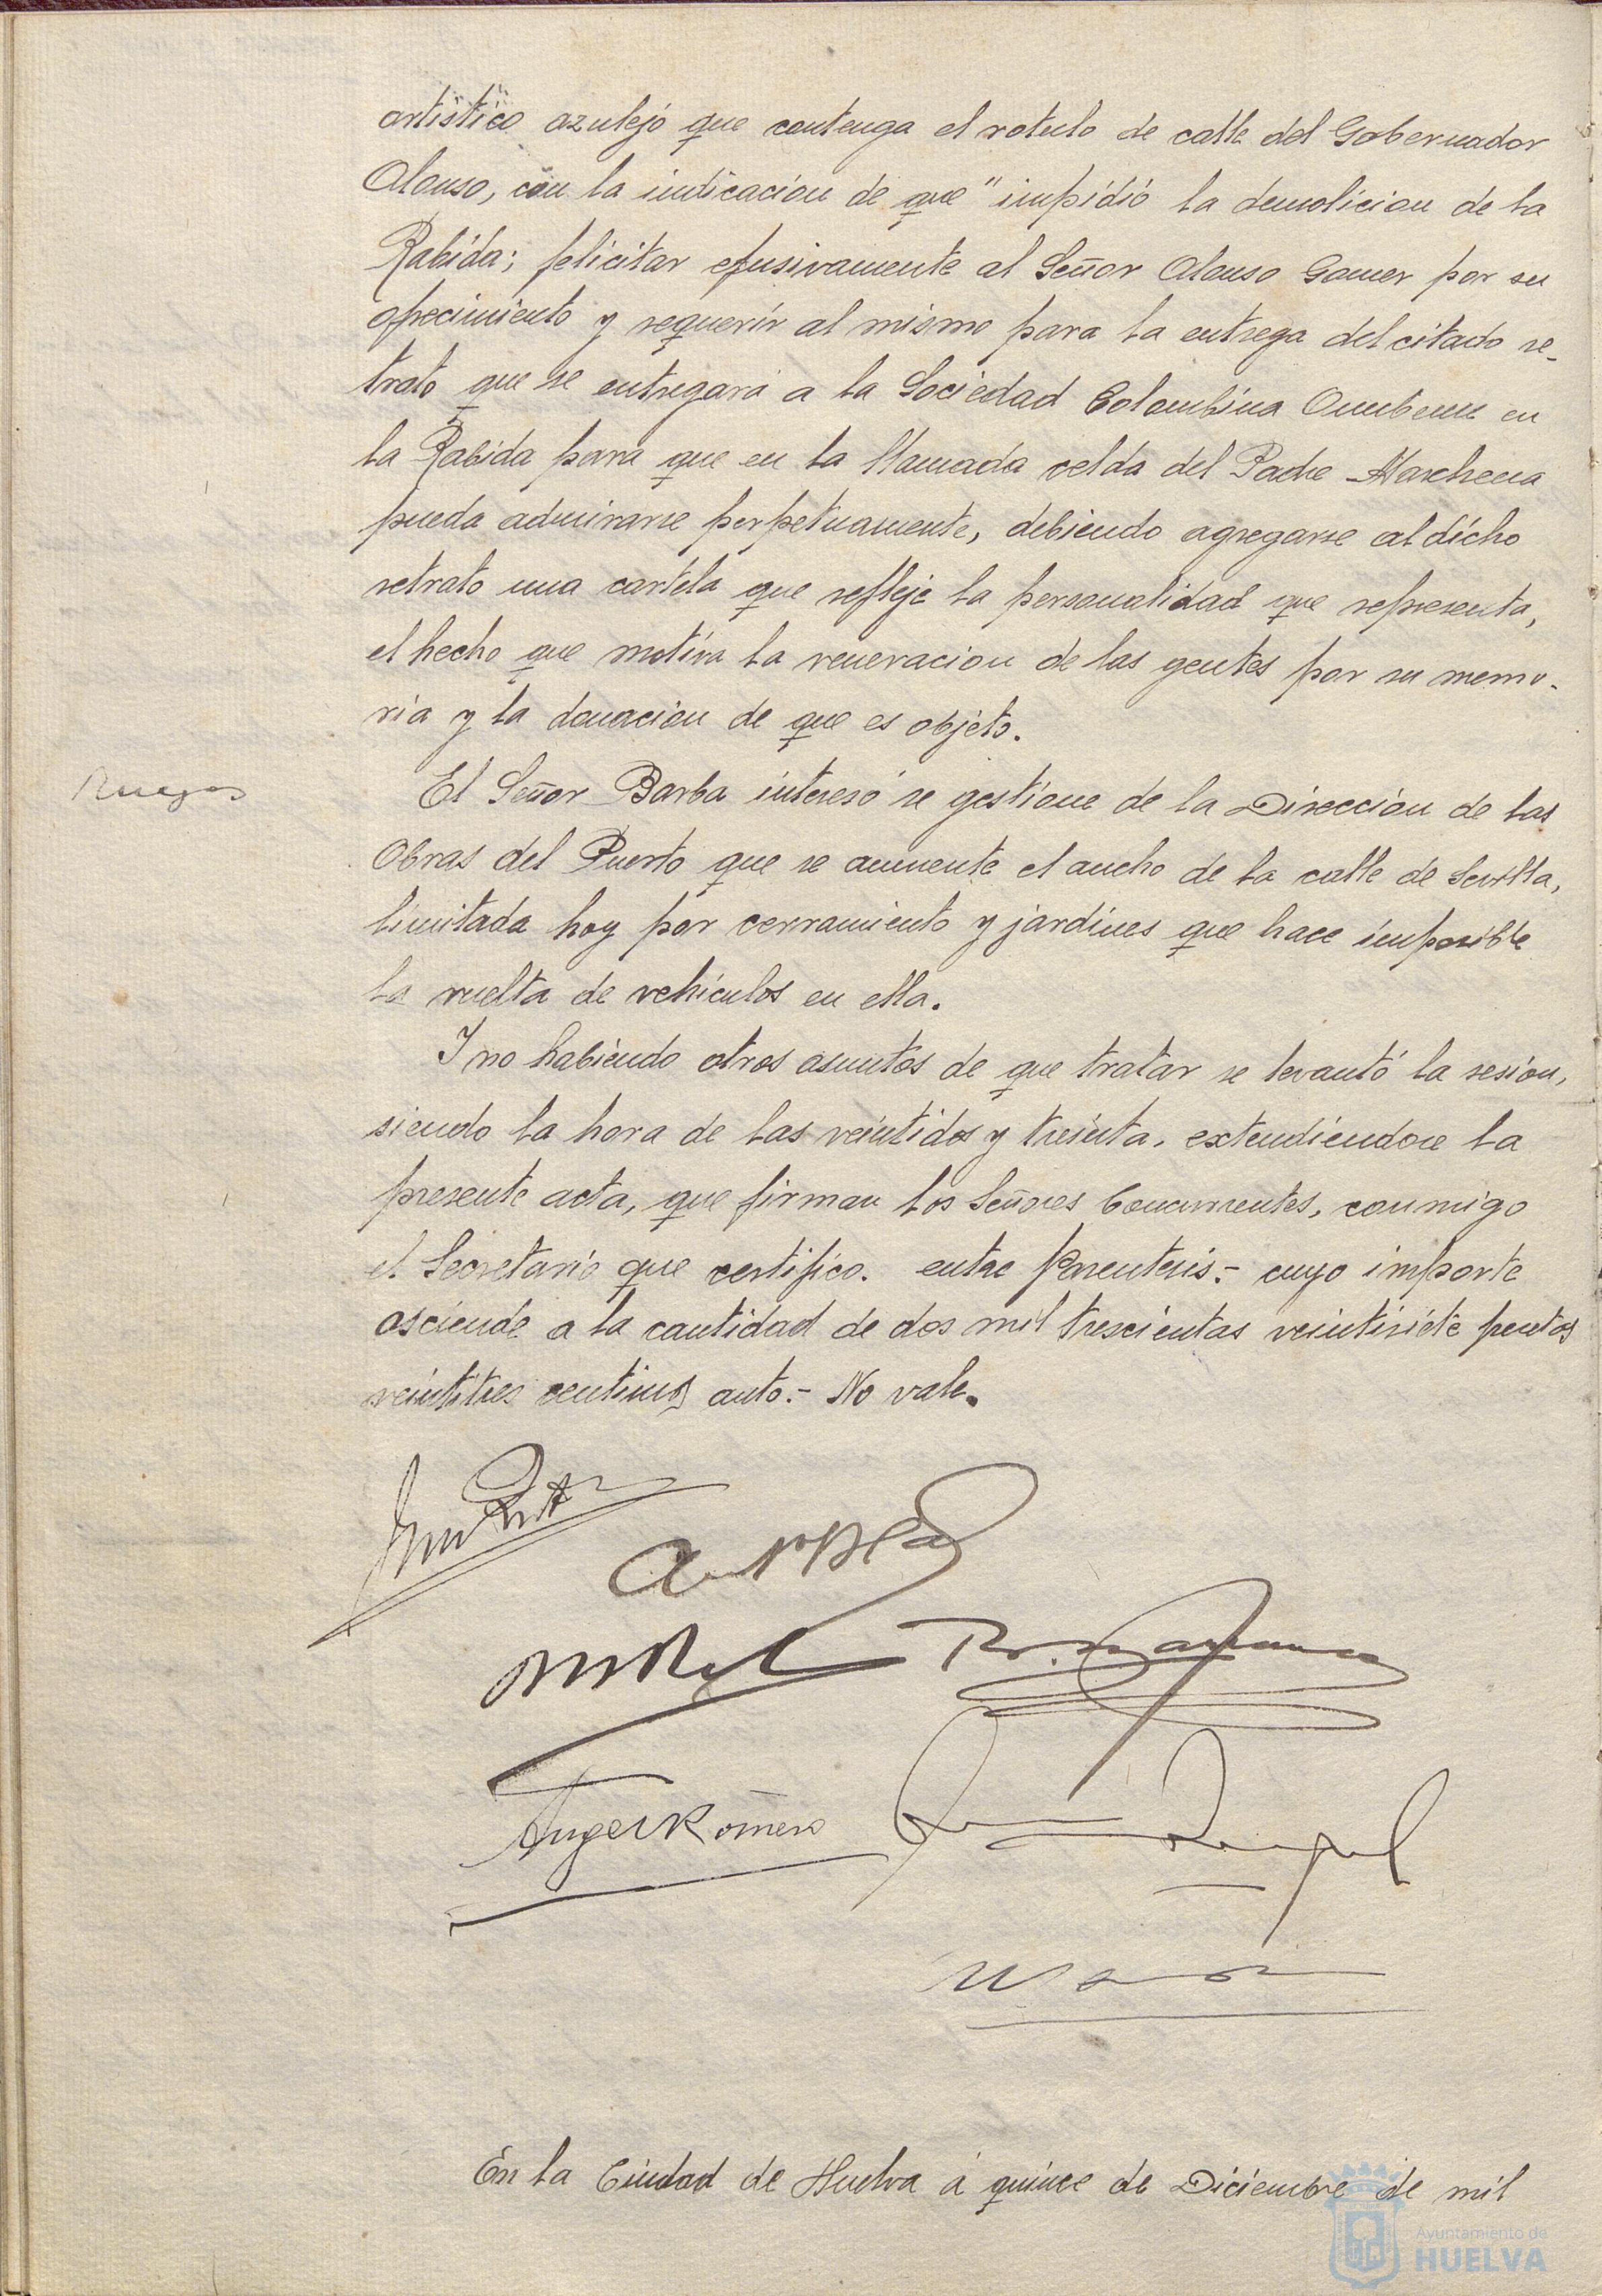 artístico azulejo que contenga el rotulo de calle del Gobernador
Alonso, con la indicacion de que "impidió la demolicion de la
Rabida; felicitar efusivamente al Señor Alonso Gomer por su
ofrecimiento y requerir al mismo para la entrega del citado re-
trato que se entregará a la Sociedad Colombina Onubense en
la Rabida para que en la llamada celda del Padre Marchena
pueda admirarse perpetuamente, debiendo agregarse al dicho
retrato una cartela que refleje la personalidad que representa,
el hecho que motiva la veneracion de las gentes por su memo-
ria y la donacion de que es objeto.
Ruegos
El Señor Barba interesó se gestione de la Direccion de las
Obras del Puerto que se aumente el ancho de la calle de Sevilla,
limitada hoy por cerramiento y jardines que hace imposible
la vuelta de vehiculos en ella.
Y no habiendo otros asuntos de que tratar se levantó la sesión,
siendo la hora de las veintidos y treinta, extendiendose la
presente acta, que firman los Señores Concurrentes, conmigo
el Secretario que certifico. entre parentesis.- cuyo importe
asciende a la cantidad de dos mil trescientas veintisiete pesetas
veintitres centimos anto.- No vale.
Angel Romero
En la Ciudad de Huelva á quince de Diciembre de mil
Ayuntamiento de
HUELVA